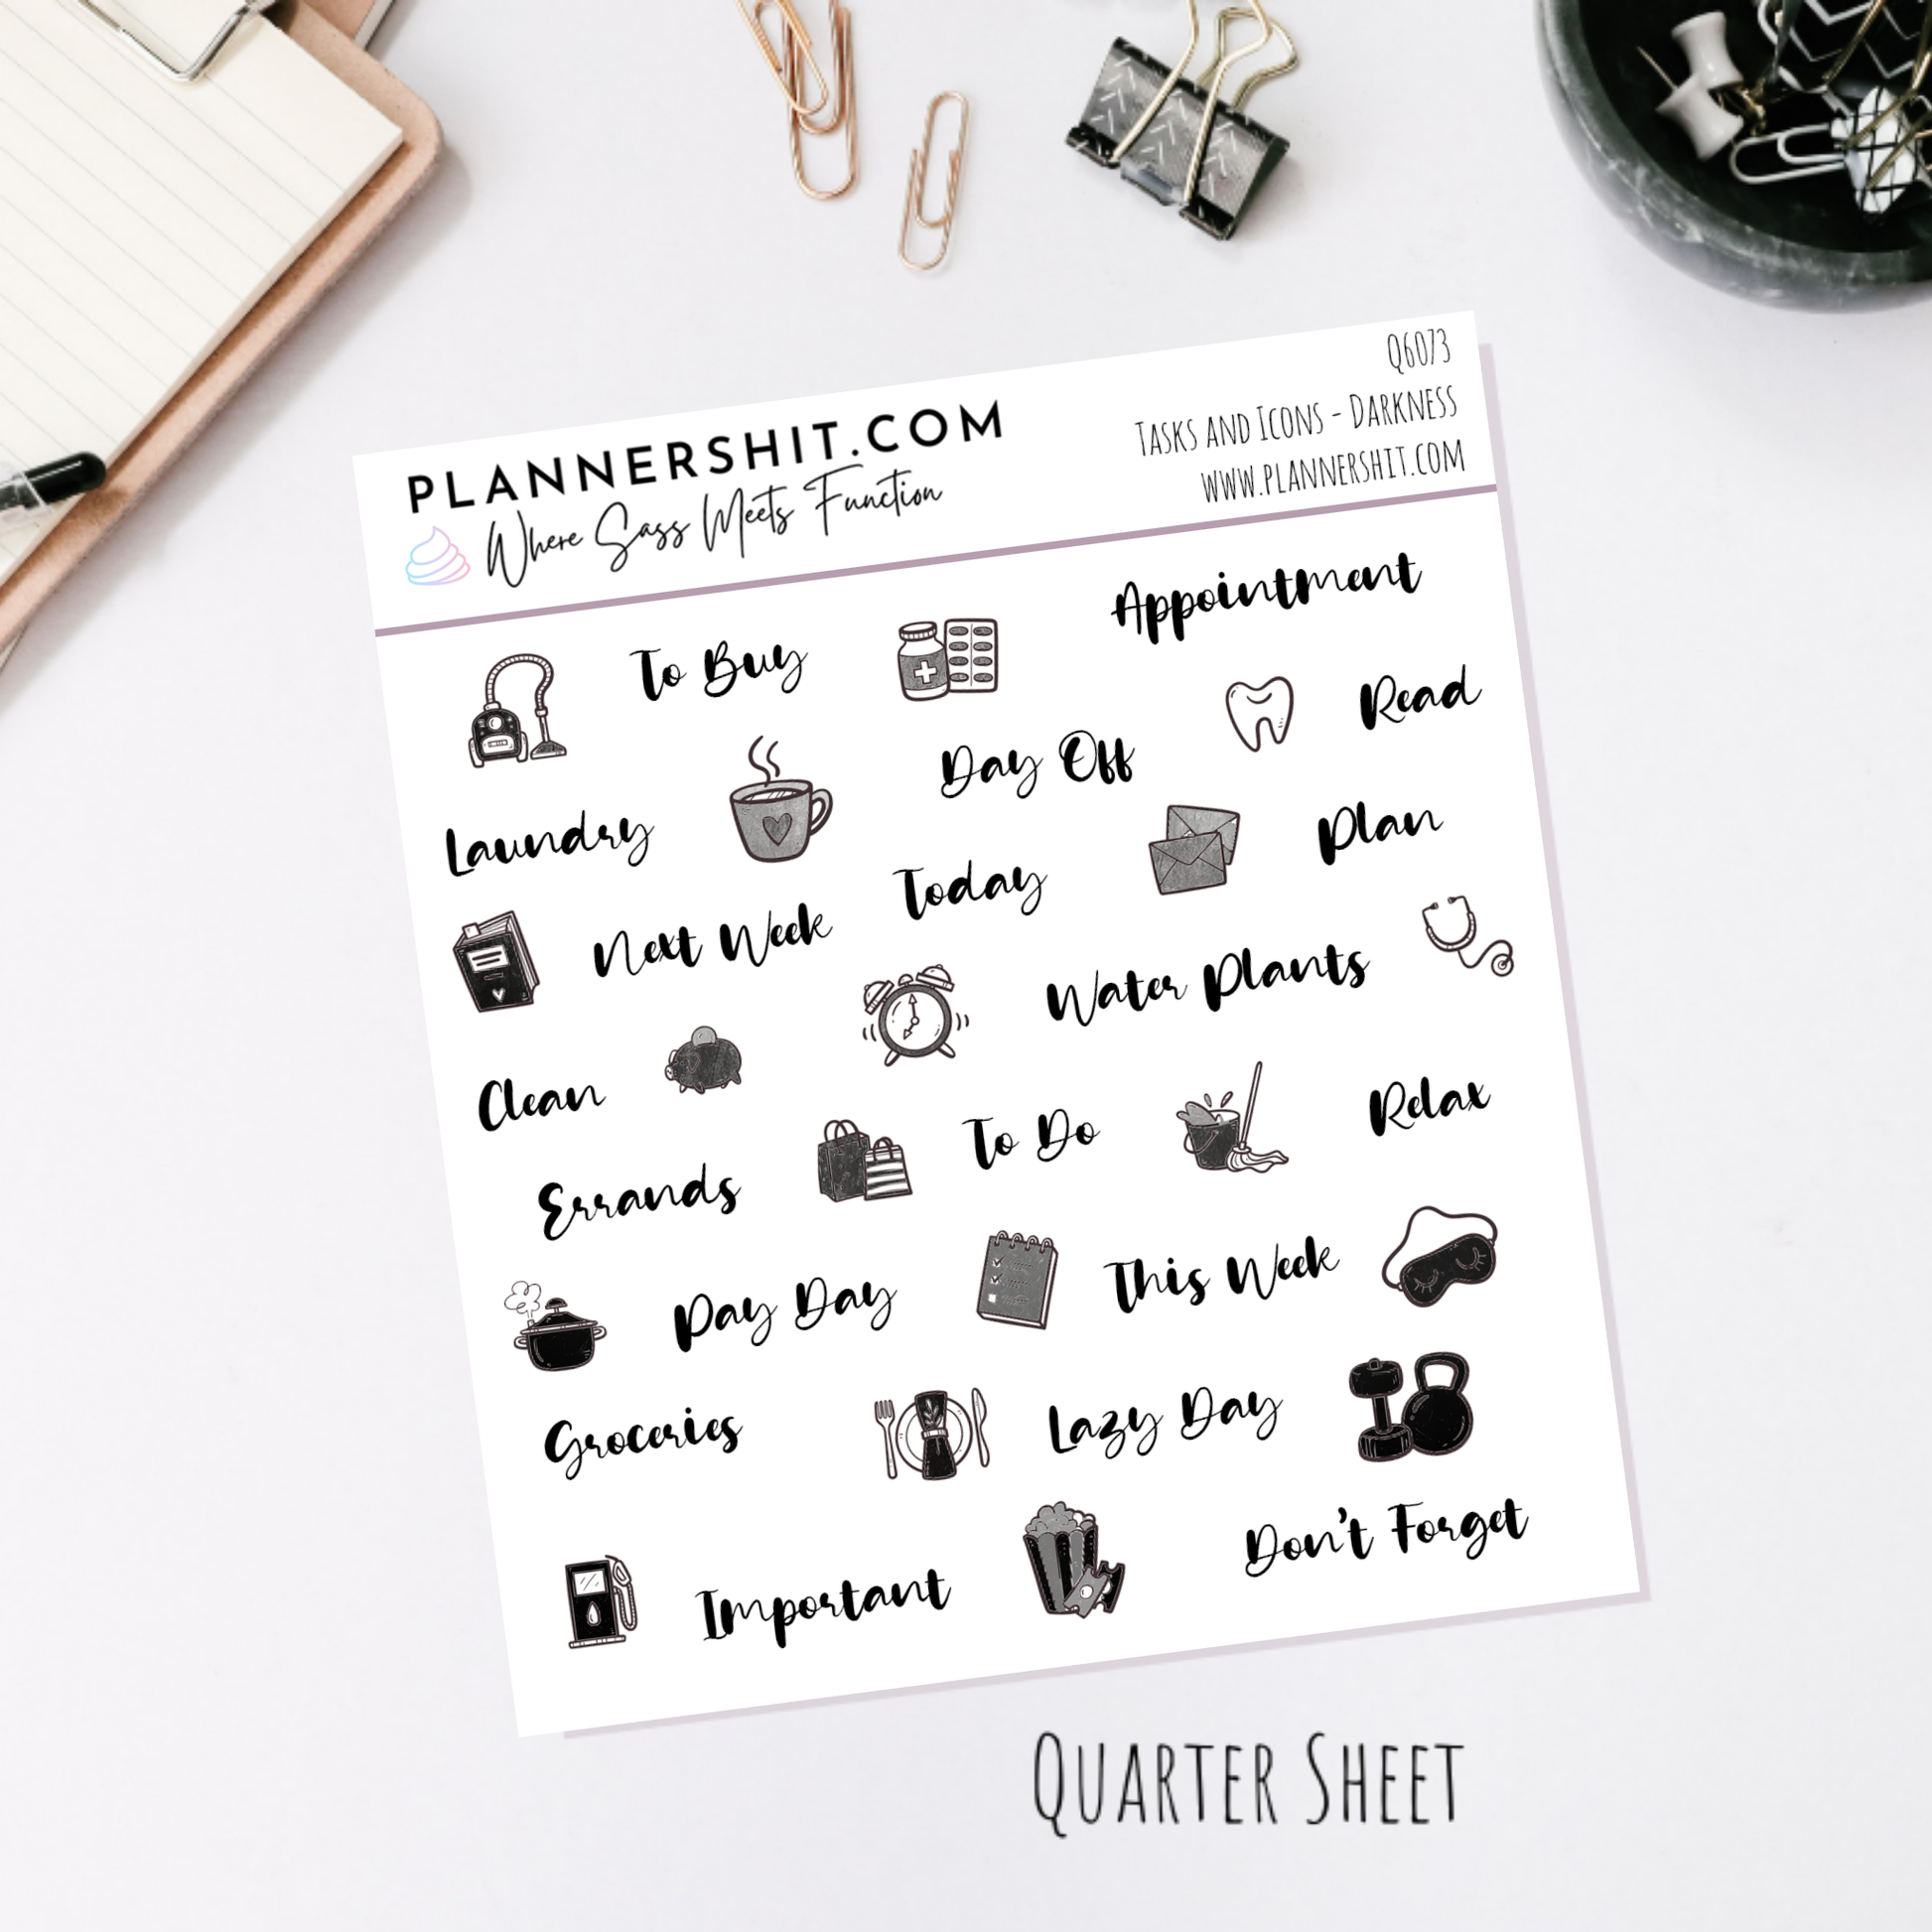 PLANNERSHIT.COM
Where Sass Meets Function
Q6073
Tasks and Icons - Darkness
www.plannershit.com
Appointment
To Buy
Read
Day Off
Laundry
Plan
Today
Next Week
Water Plants
Clean
To Do
Relax
Errands
This Week
Pay Day
Lazy Day
Groceries
Don't Forget
Important
Quarter Sheet